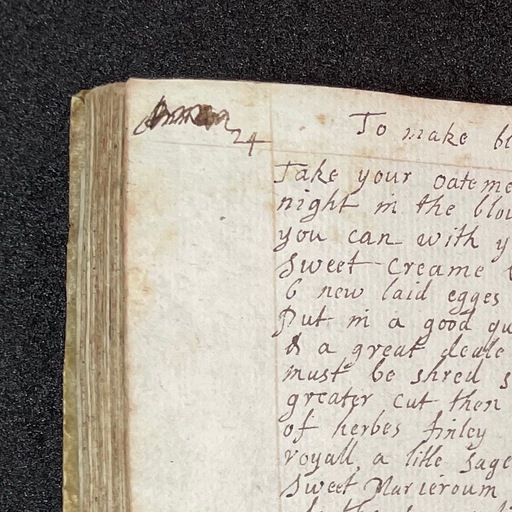 24
To make bl
Take your oateme
night in the blou
you can with y
Sweet creame
6 new laid egges
Put in a good qu
& a great deale
must be shred s
greater cut then
of herbes finley
royall a litle sage
Sweet Marieroum